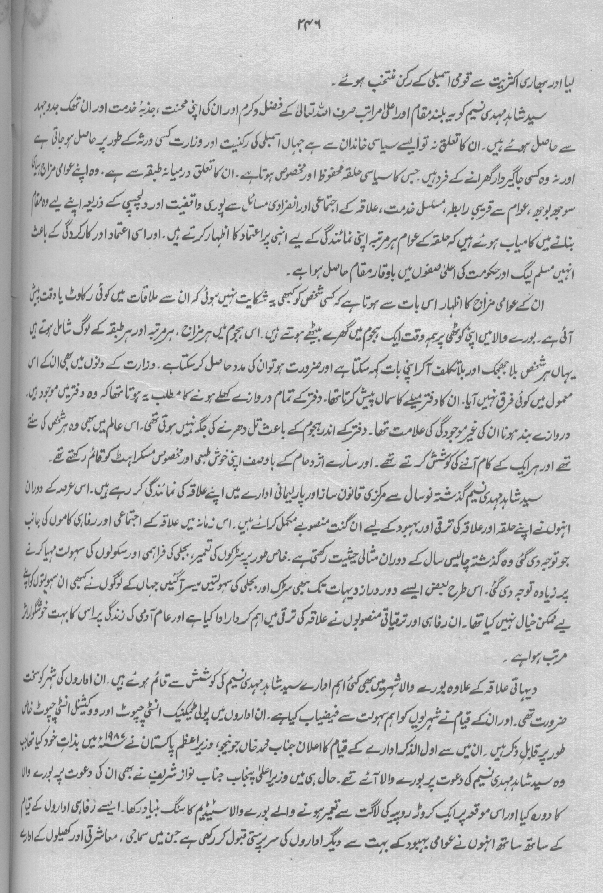 ۲۴۶
لیا اور بھاری اکثریت سے قومی اسمبلی کے رکن منتخب ہوئے۔
سید شاہد مہدی نسیم کو یہ بلند مقام اور اعلیٰ مراتب صرف اللہ تعالیٰ کے فضل و کرم اور ان کی اپنی محنت، جذبۂ خدمت اور ان تھک جدوجہد
سے حاصل ہوئے ہیں۔ ان کا تعلق نہ تو ایسے سیاسی خاندان سے ہے جہاں اسمبلی کی رکنیت اور وزارت کسی ورثہ کے طور پر حاصل ہو جاتی ہے
اور نہ وہ کسی جاگیردار گھرانے کے فرد ہیں جس کا سیاسی حلقہ محفوظ اور مخصوص ہوتا ہے۔ ان کا تعلق درمیانہ طبقہ سے ہے۔ وہ اپنے عوامی مزاج
سوجھ بوجھ، عوام سے قریبی رابطہ، مسلسل خدمت، علاقہ کے اجتماعی اور انفرادی مسائل سے پوری واقفیت اور دلچسپی کے ذریعہ اپنے لیے وہ مقام
بنانے میں کامیاب ہوئے ہیں کہ حلقہ کے عوام ہر مرتبہ اپنی نمائندگی کے لیے انہی پر اعتماد کا اظہار کرتے ہیں۔ اور اسی اعتماد اور کارکردگی کے باعث
انہیں مسلم لیگ اور حکومت کی اعلیٰ صفوں میں باوقار مقام حاصل ہوا ہے۔
ان کے عوامی مزاج کا اظہار اس بات سے ہوتا ہے کہ کسی شخص کو کبھی یہ شکایت نہیں ہوئی کہ ان سے ملاقات میں کوئی رکاوٹ یا دقت پیش
آئی ہے۔ بورے والا میں اپنی کوٹھی پر ہمہ وقت ایک ہجوم میں گھرے بیٹھے ہوتے ہیں۔ اس ہجوم میں ہر مزاج، ہر مرتبہ اور ہر طبقہ کے لوگ شامل ہوتے ہیں
یہاں ہر شخص بلا جھجک اور بلا تکلف آ کر اپنی بات کہہ سکتا ہے اور ضرورت ہو تو ان کی مدد حاصل کر سکتا ہے۔ وزارت کے دنوں میں بھی ان کے اس
معمول میں کوئی فرق نہیں آیا۔ ان کا دفتر میلے کا سماں پیش کرتا تھا۔ دفتر کے تمام دروازے کھلے ہونے کا مطلب یہ ہوتا تھا کہ وہ دفتر میں موجود ہیں
دروازے بند ہونا ان کی غیر موجودگی کی علامت تھا۔ دفتر کے اندر ہجوم کے باعث تل دھرنے کی جگہ نہیں ہوتی تھی۔ اس عالم میں بھی وہ ہر شخص کی سنتے
تھے اور ہر ایک کے کام آنے کی کوشش کرتے تھے۔ اور سارے اژدحام کے باوصف اپنی خوش طبعی اور مخصوص مسکراہٹ کو قائم رکھتے تھے۔
سید شاہد مہدی نسیم گذشتہ نو سال سے مرکزی قانون ساز اور پارلیمانی ادارے میں اپنے علاقہ کی نمائندگی کر رہے ہیں۔ اس عرصہ کے دوران
انہوں نے اپنے حلقہ اور علاقہ کی ترقی اور بہبود کے لیے ان گنت منصوبے مکمل کرائے ہیں۔ اس زمانہ میں علاقہ کے اجتماعی اور رفاہی کاموں کی جانب
جو توجہ دی گئی وہ گذشتہ چالیس سال کے دوران مثالی حیثیت رکھتی ہے۔ خاص طور پر سڑکوں کی تعمیر، بجلی کی فراہمی اور سکولوں کی سہولت مہیا کرنے
پر زیادہ توجہ دی گئی۔ اس طرح بعض ایسے دور دراز دیہات تک بھی سڑک اور بجلی کی سہولتیں میسر آ گئیں جہاں کے لوگوں نے کبھی ان سہولتوں کا اپنے
لیے ممکن خیال نہیں کیا تھا۔ ان رفاہی اور ترقیاتی منصوبوں نے علاقہ کی ترقی میں اہم کردار ادا کیا ہے اور عام آدمی کی زندگی پر اس کا بہت خوشگوار اثر
مرتب ہوا ہے۔
دیہاتی علاقہ کے علاوہ بورے والا شہر میں بھی کئی اہم ادارے سید شاہد مہدی نسیم کی کوشش سے قائم ہوئے ہیں۔ ان اداروں کی شہر کو سخت
ضرورت تھی۔ اور ان کے قیام نے شہریوں کو اہم سہولت سے فیضیاب کیا ہے۔ ان اداروں میں پولی ٹیکنیک انسٹی ٹیوٹ اور ووکیشنل انسٹی ٹیوٹ خاص
طور پر قابل ذکر ہیں۔ ان میں سے اول الذکر ادارے کے قیام کا اعلان جناب محمد خاں جونیجو، وزیراعظم پاکستان نے ۱۹۸۷ء میں بذات خود کیا تھا جب
وہ سید شاہد مہدی نسیم کی دعوت پر بورے والا آئے تھے۔ حال ہی میں وزیراعلیٰ پنجاب جناب نواز شریف نے بھی ان کی دعوت پر بورے والا
کا دورہ کیا اور اس موقعہ پر ایک کروڑ روپیہ کی لاگت سے تعمیر ہونے والے بورے والا سٹیڈیم کا سنگ بنیاد رکھا۔ ایسے رفاہی اداروں کے قیام
کے ساتھ ساتھ انہوں نے عوامی بہبود کے بہت سے دیگر اداروں کی سرپرستی قبول کر رکھی ہے جن میں سماجی، معاشرتی اور کھیلوں کے ادارے